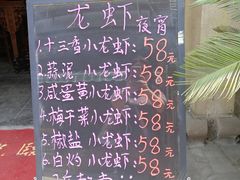 龙虾
夜宵
1.十三香小龙虾:58元
2.蒜泥小龙虾:58元
3.咸蛋黄小龙虾:58元
4.梅干菜小龙虾:58元
5.椒盐小龙虾:58元
6.白灼小龙虾:58元